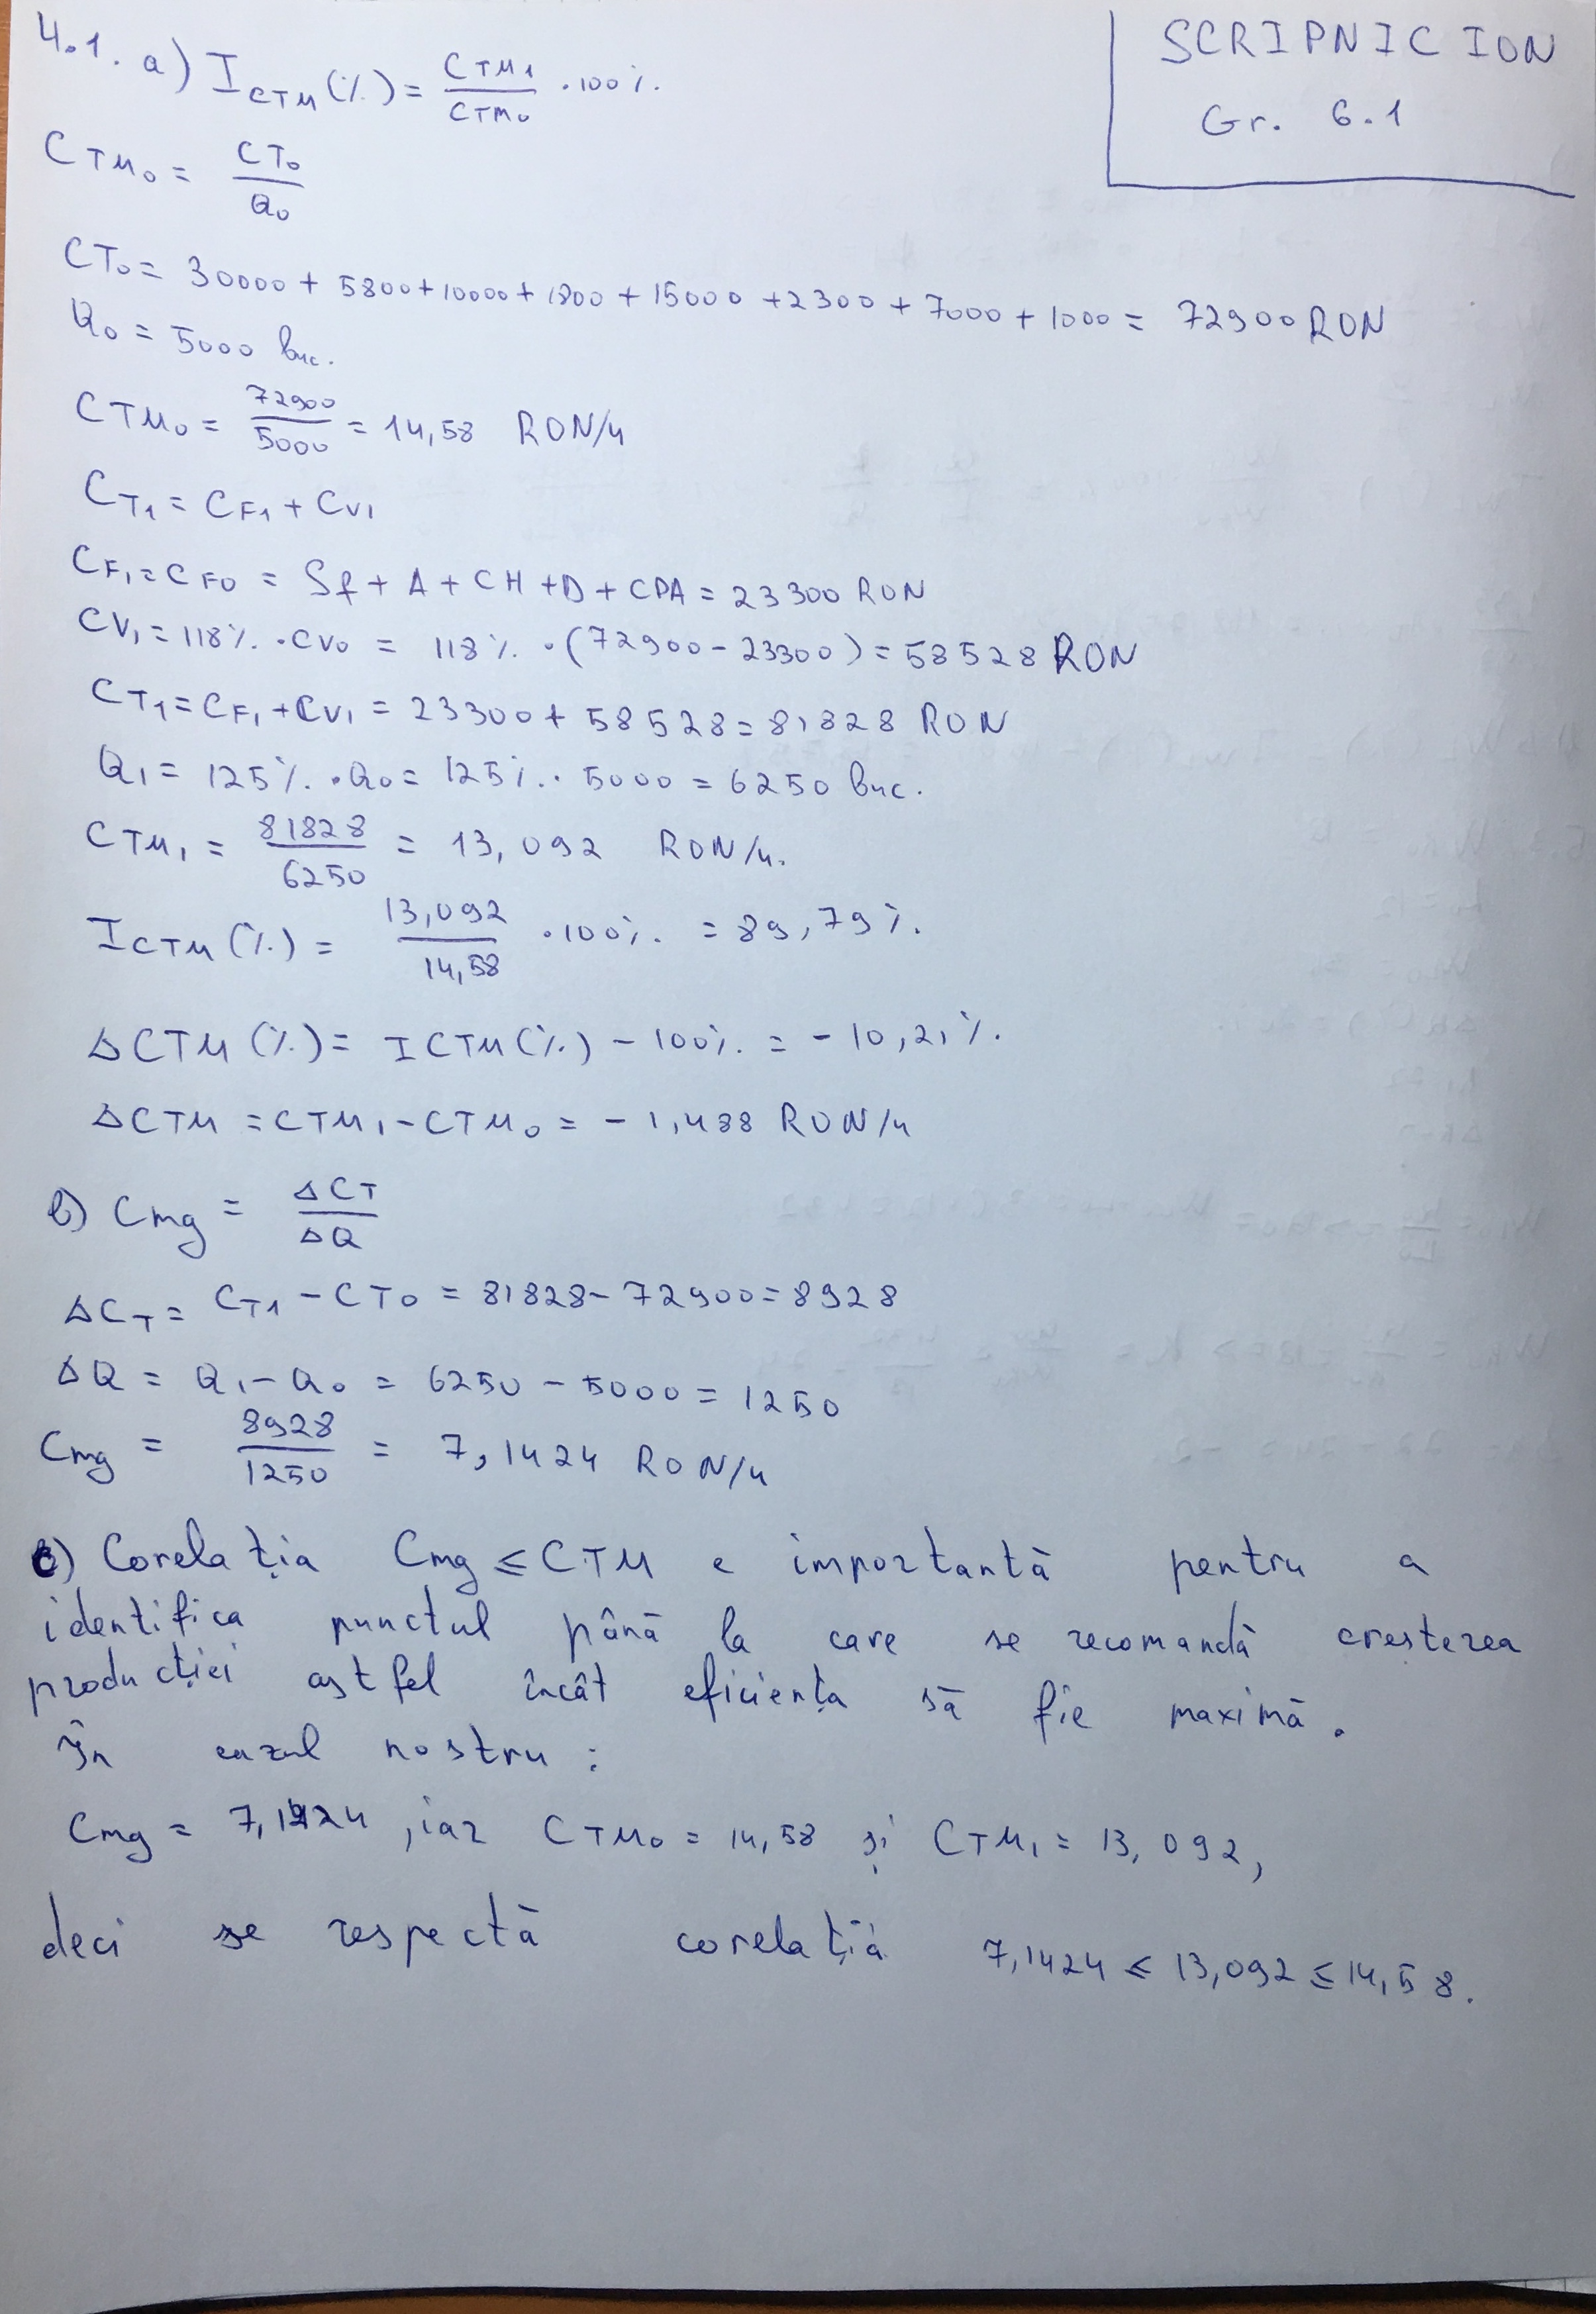 SCRIPNIC ION
Gr. 6.1
4.1. a) I CTM (%) = CTM1 / CTM0 · 100%.
CTM0 = CT0 / Q0
CT0 = 30000 + 5800 + 10000 + 1800 + 15000 + 2300 + 7000 + 1000 = 72900 RON
Q0 = 5000 buc.
CTM0 = 72900 / 5000 = 14,58 RON/u
CT1 = CF1 + CV1
CF1 = CF0 = Sf + A + CH + D + CPA = 23300 RON
CV1 = 118% · CV0 = 118% · (72900 - 23300) = 58528 RON
CT1 = CF1 + CV1 = 23300 + 58528 = 81828 RON
Q1 = 125% · Q0 = 125% · 5000 = 6250 buc.
CTM1 = 81828 / 6250 = 13,092 RON/u.
I CTM (%) = 13,092 / 14,58 · 100% = 89,79%.
ΔCTM (%) = ICTM(%) - 100% = - 10,21%.
ΔCTM = CTM1 - CTM0 = - 1,488 RON/u
b) Cmg = ΔCT / ΔQ
ΔCT = CT1 - CT0 = 81828 - 72900 = 8928
ΔQ = Q1 - Q0 = 6250 - 5000 = 1250
Cmg = 8928 / 1250 = 7,1424 RON/u
c) Corelația Cmg ≤ CTM e importantă pentru a
identifica punctul până la care se recomandă creșterea
producției astfel încât eficiența să fie maximă.
În cazul nostru :
Cmg = 7,1424 , iar CTM0 = 14,58 și CTM1 = 13,092,
deci se respectă corelația 7,1424 ≤ 13,092 ≤ 14,58.